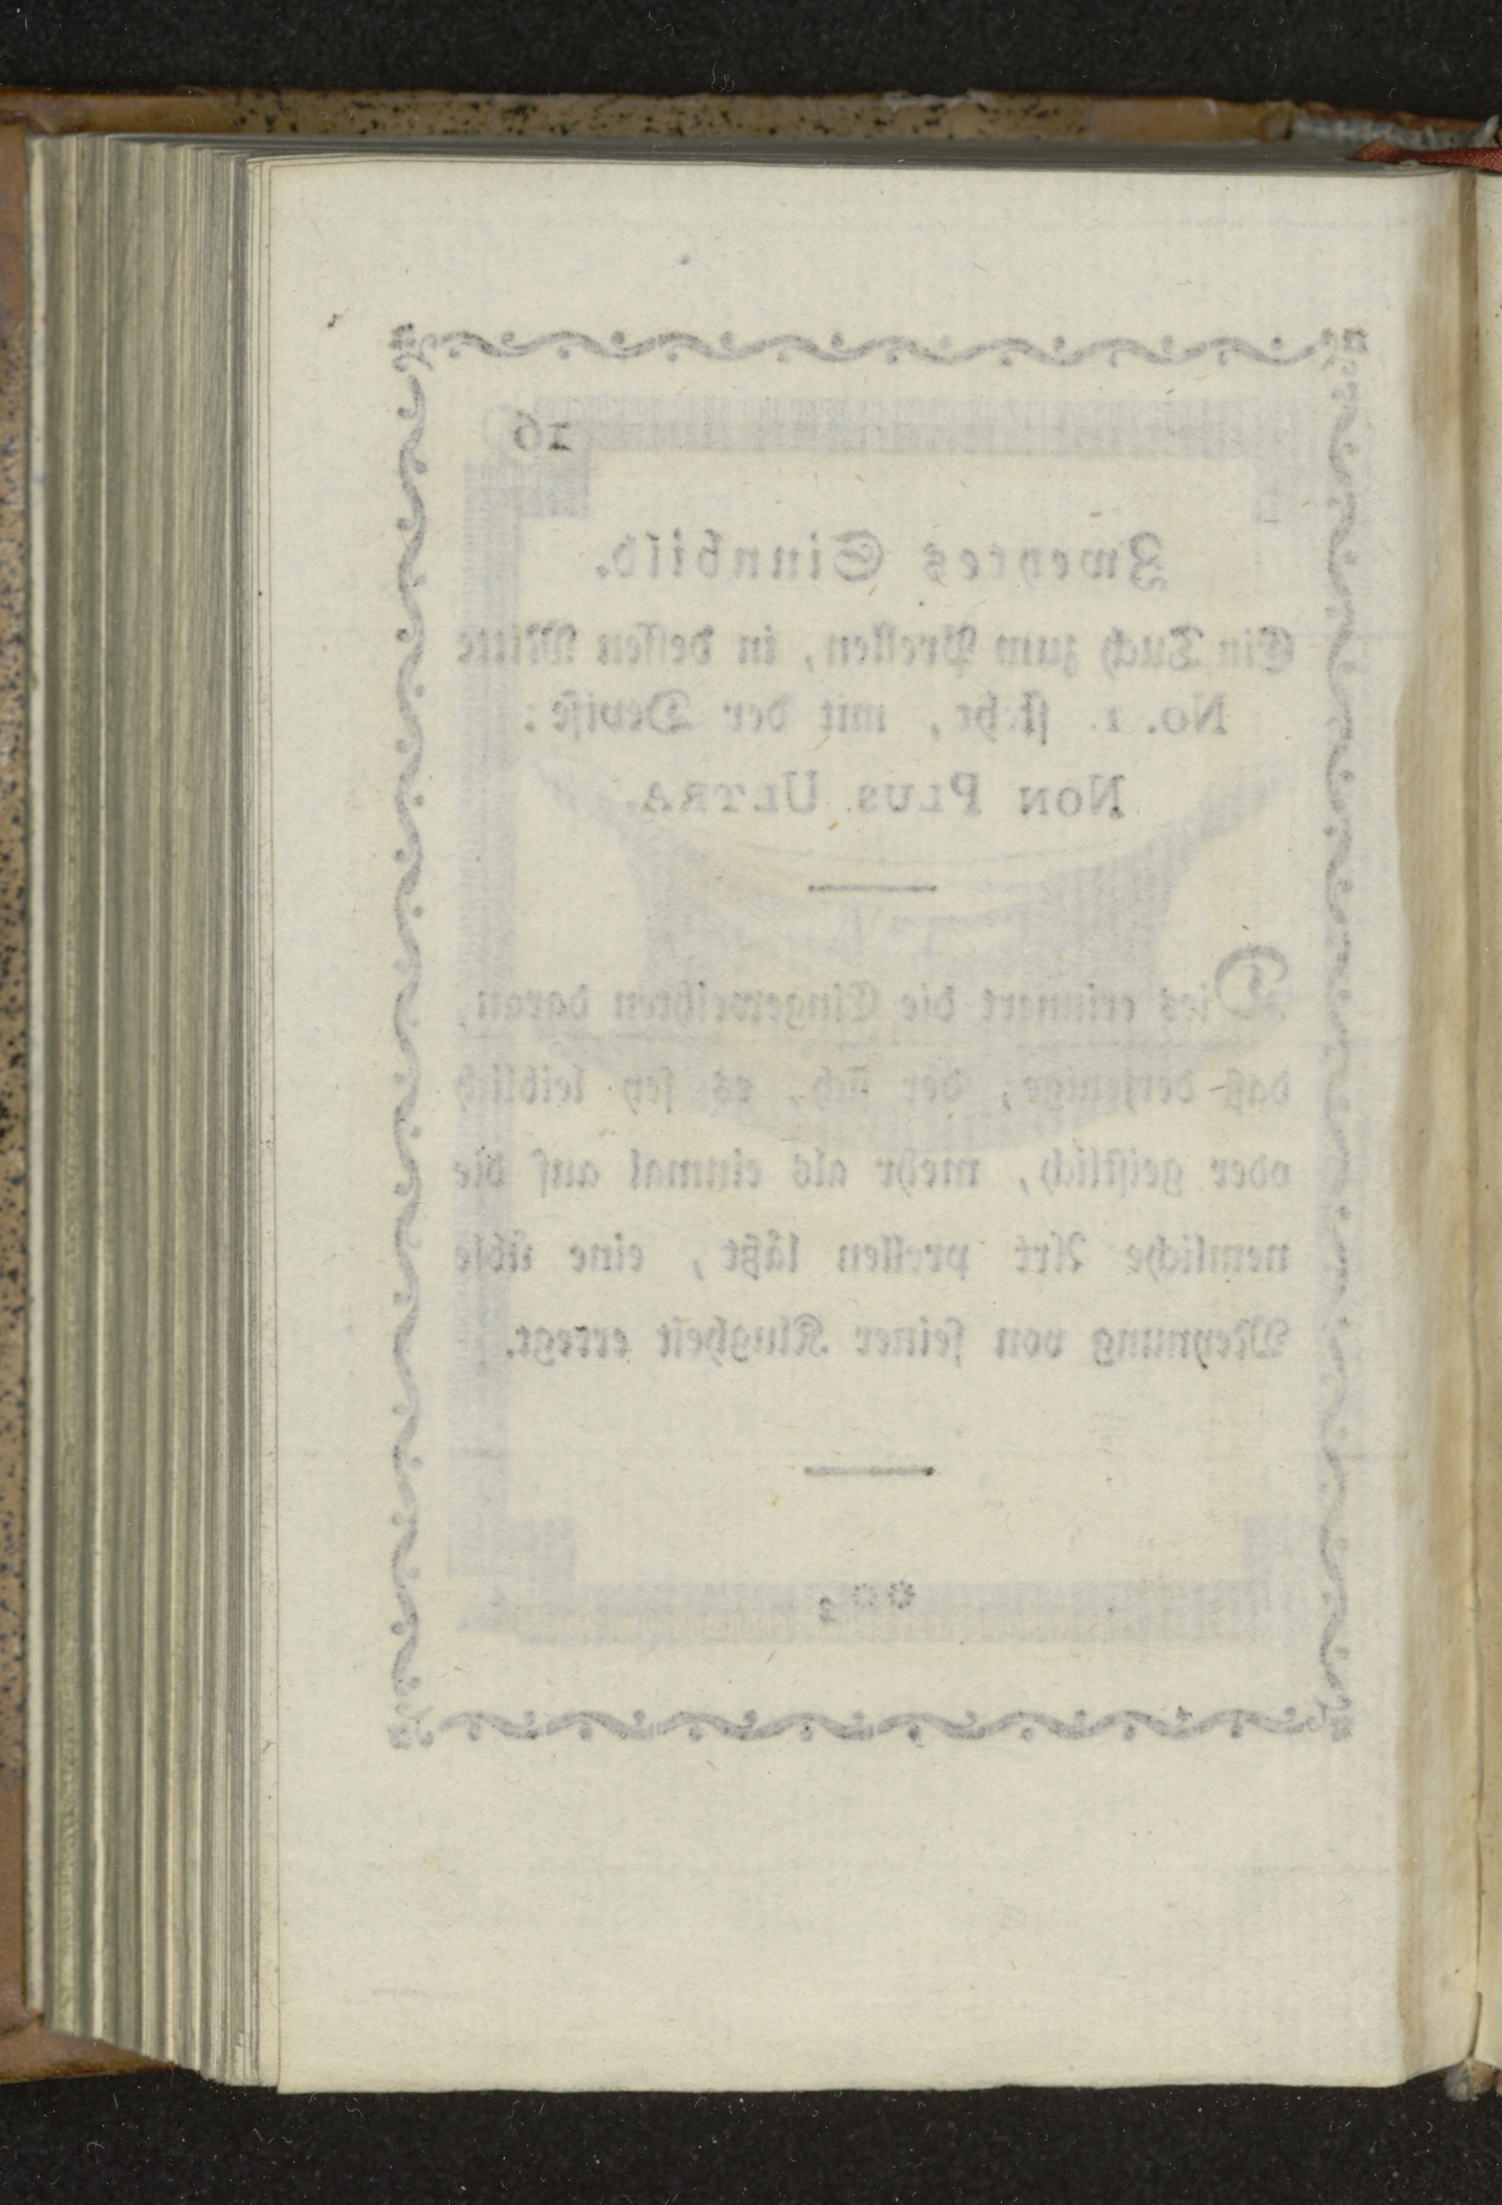 16
Zweytes Sinnbild.
Ein Tuch zum Pressen, in dessen Mitte
No. 1. steht, mit der Devise:
NON PLUS ULTRA.
Dies erinnert die Eingeweihten daran,
daß derjenige, der sich, es sey leiblich
oder geistlich, mehr als einmal auf die
nemliche Art pressen läßt, eine üble
Meynung von seiner Klugheit erregt.